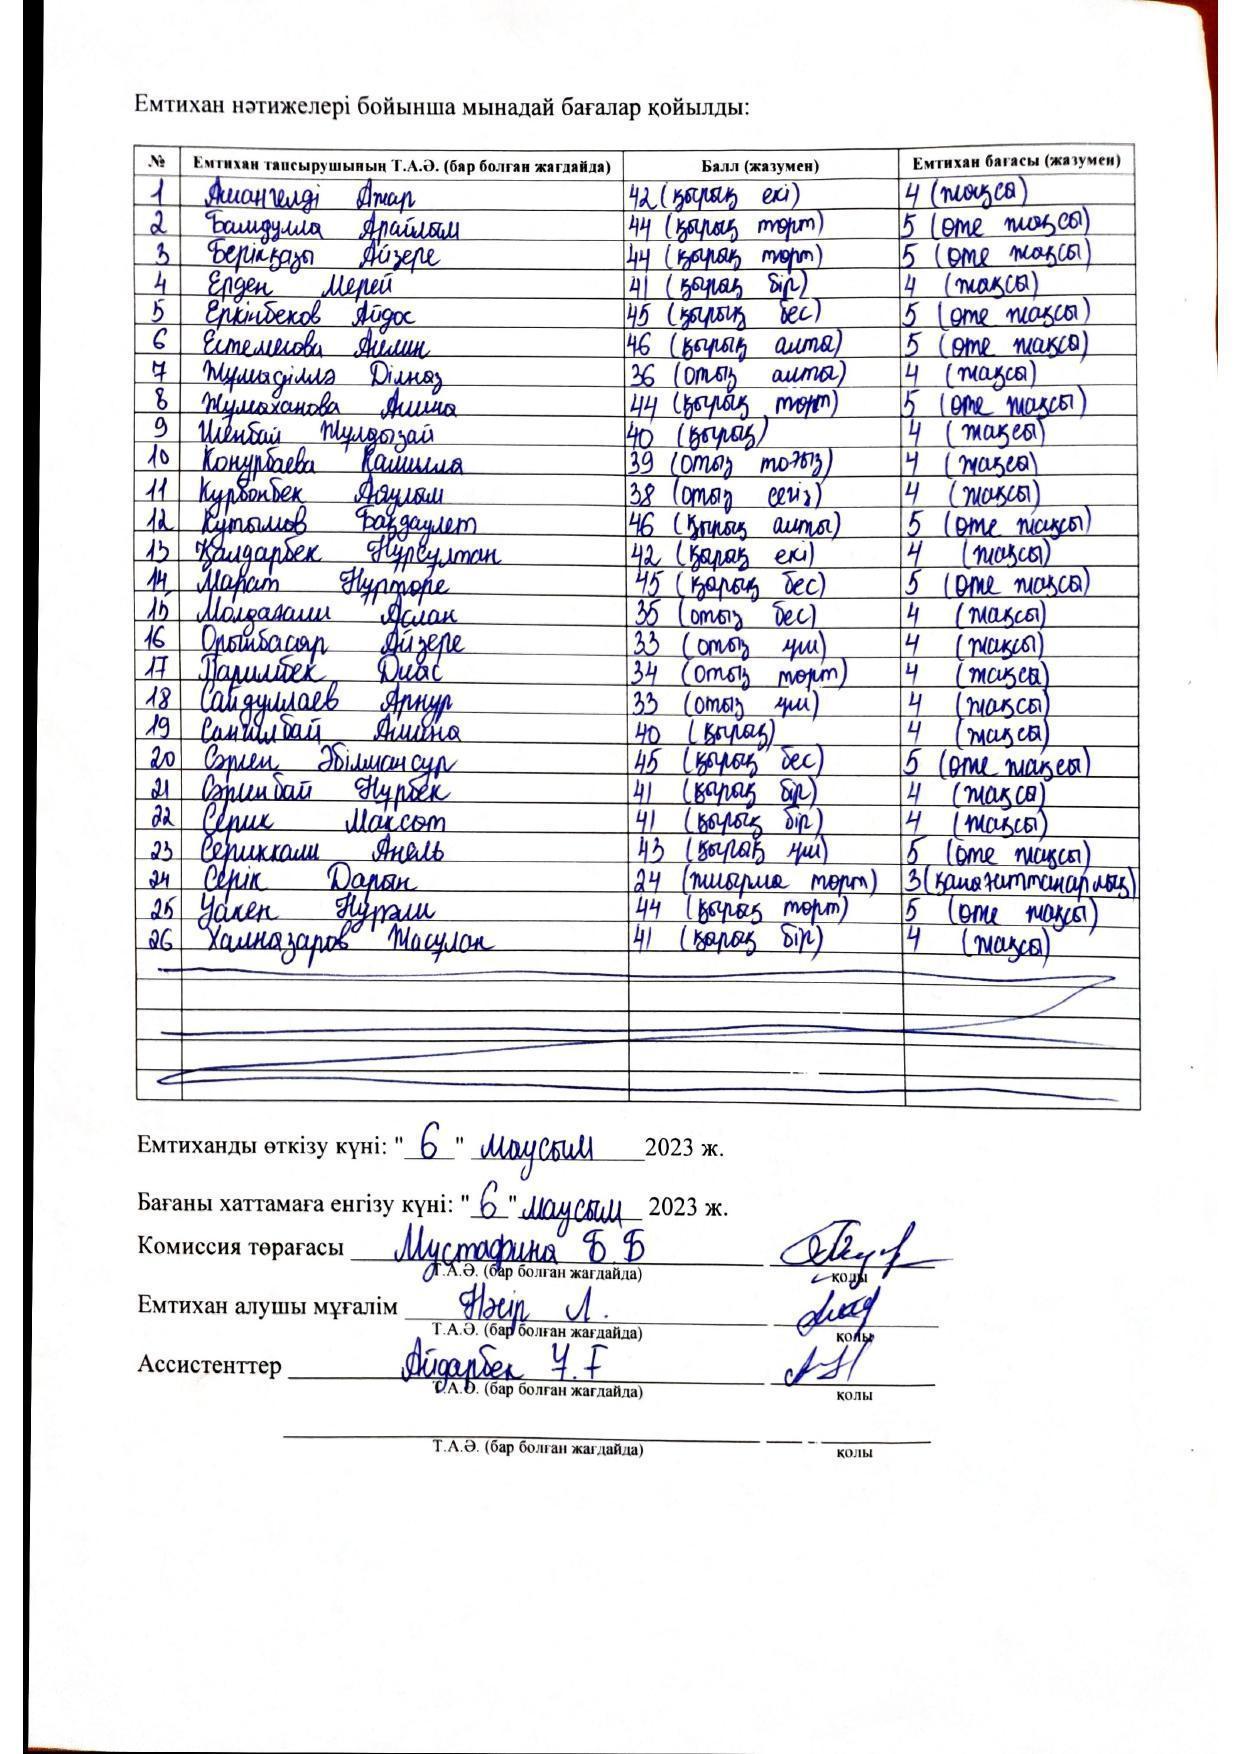 Емтихан нәтижелері бойынша мынадай бағалар қойылды:
№ Емтихан тапсырушының Т.А.Ә. (бар болған жағдайда) Балл (жазумен) Емтихан бағасы (жазумен)
1 Амангелді Ажар 42 (қырық екі) 4 (жақсы)
2 Арайлым 44 (қырық төрт) 5 (өте жақсы)
3 Берікқазы Айзере 44 (қырық төрт) 5 (өте жақсы)
4 Ерден Мерей 41 (қырық бір) 4 (жақсы)
5 Еркінбеков Айдос 45 (қырық бес) 5 (өте жақсы)
6 Естемесова Аелин 46 (қырық алты) 5 (өте жақсы)
7 Жұмаділлә Ділназ 36 (отыз алты) 4 (жақсы)
8 Жумаханова Амина 44 (қырық төрт) 5 (өте жақсы)
9 Иенбай Жұлдызай 40 (қырық) 4 (жақсы)
10 Конурбаева Камилла 39 (отыз тоғыз) 4 (жақсы)
11 Құрбонбек Аяулым 38 (отыз сегіз) 4 (жақсы)
12 Кутымов Бақдаулет 46 (қырық алты) 5 (өте жақсы)
13 Қалдарбек Нұрсұлтан 42 (қырық екі) 4 (жақсы)
14 Марат Нұртөре 45 (қырық бес) 5 (өте жақсы)
15 Молдағали Аслан 35 (отыз бес) 4 (жақсы)
16 Орынбасар Айзере 33 (отыз үш) 4 (жақсы)
17 Диас 34 (отыз төрт) 4 (жақсы)
18 Сайдуллаев Арнур 33 (отыз үш) 4 (жақсы)
19 Сангилбай Амина 40 (қырық) 4 (жақсы)
20 Сәрсен Әбілмансұр 45 (қырық бес) 5 (өте жақсы)
21 Сәрсенбай Нұрбек 41 (қырық бір) 4 (жақсы)
22 Серик Максат 41 (қырық бір) 4 (жақсы)
23 Сериккали Анель 43 (қырық үш) 5 (өте жақсы)
24 Серік Дарын 24 (жиырма төрт) 3 (қанағаттанарлық)
25 Уәкен Нұрәли 44 (қырық төрт) 5 (өте жақсы)
26 Халназаров Жасұлан 41 (қырық бір) 4 (жақсы)
Емтиханды өткізу күні: " 6 " маусым 2023 ж.
Бағаны хаттамаға енгізу күні: " 6 " маусым 2023 ж.
Комиссия төрағасы Мустафина Б.Б
Т.А.Ә. (бар болған жағдайда) қолы
Емтихан алушы мұғалім Нәсір Л.
Т.А.Ә. (бар болған жағдайда) қолы
Ассистенттер Айдарбек Ұ.Ғ
Т.А.Ә. (бар болған жағдайда) қолы
Т.А.Ә. (бар болған жағдайда) қолы